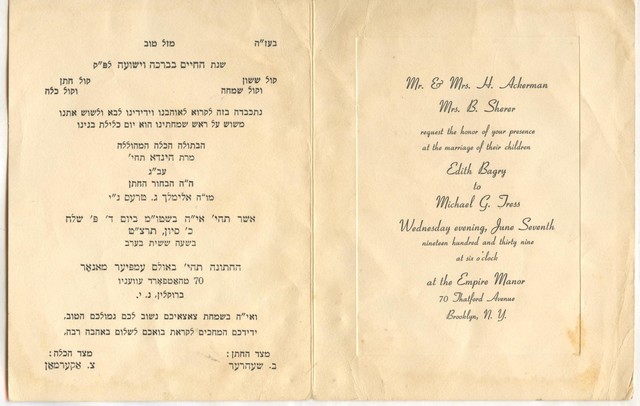 בעז"ה
מזל טוב
שנת החיים בברכה וישועה לפ"ק
קול ששון
וקול שמחה
קול חתן
וקול כלה
נתכבדה בזה לקרוא לאוהבנו וידידינו לבא ולשוש אתנו
משוש על ראש שמחתינו הוא יום כלילת בנינו
הבתולה הכלה המהוללה
מרת הינדא תחי'
עב"ג
ה"ה הבחור החתן
מו"ה אלימלך ג. טרעס נ"י
אשר תהי' אי"ה בשטו"מ ביום ד' פ' שלח
כ' סיון, תרצ"ט
בשעה ששית בערב
החתונה תהי' באולם עמפייער מאנאר
70 טהאטפארד עוועניו
ברוקלין, נ. י.
ואי"ה בשמחת צאצאיכם נשוב לכם גמולכם הטוב.
ידידכם המחכים לקראת בואכם לשלום באהבה רבה.
מצד החתן:
ב. שעהרער
מצד הכלה:
צ. אקערמאן
Mr. & Mrs. H. Ackerman
Mrs. B. Sherer
request the honor of your presence
at the marriage of their children
Edith Bagry
to
Michael G. Tress
Wednesday evening, June Seventh
nineteen hundred and thirty nine
at six o'clock
at the Empire Manor
70 Thatford Avenue
Brooklyn, N. Y.